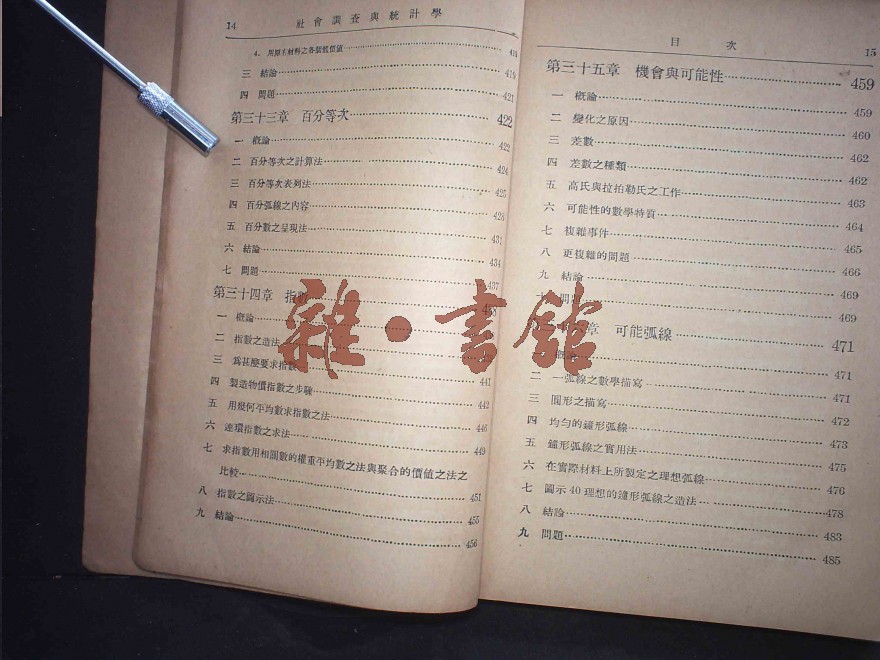 14 社會調查與統計學
4. 用原主材料之各個體價值 418
三 結論 419
四 問題 421
第三十三章 百分等次 422
一 概論 422
二 百分等次之計算法 424
三 百分等次表列法 425
四 百分弧線之內容 428
五 百分數之呈現法 431
六 結論 434
七 問題 437
第三十四章 指數
一 概論
二 指數之造法
三 爲甚麼要求指數 441
四 製造物價指數之步驟 442
五 用幾何平均數求指數之法 446
六 連環指數之求法 449
七 求指數用相關數的權重平均數之法與聚合的價值之法之
比較 451
八 指數之圖示法 455
九 結論 456
目次 15
第三十五章 機會與可能性 459
一 概論 459
二 變化之原因 460
三 差數 462
四 差數之種類 462
五 高氏與拉拍勒氏之工作 463
六 可能性的數學特質 464
七 複雜事件 465
八 更複雜的問題 466
九 結論 469
十 問題 469
章 可能弧線 471
概論 471
二 一弧線之數學描寫 471
三 圓形之描寫 472
四 均勻的鐘形弧線 473
五 鐘形弧線之實用法 475
六 在實際材料上所製定之理想弧線 476
七 圖示40理想的鐘形弧線之造法 478
八 結論 483
九 問題 485
雜·書館